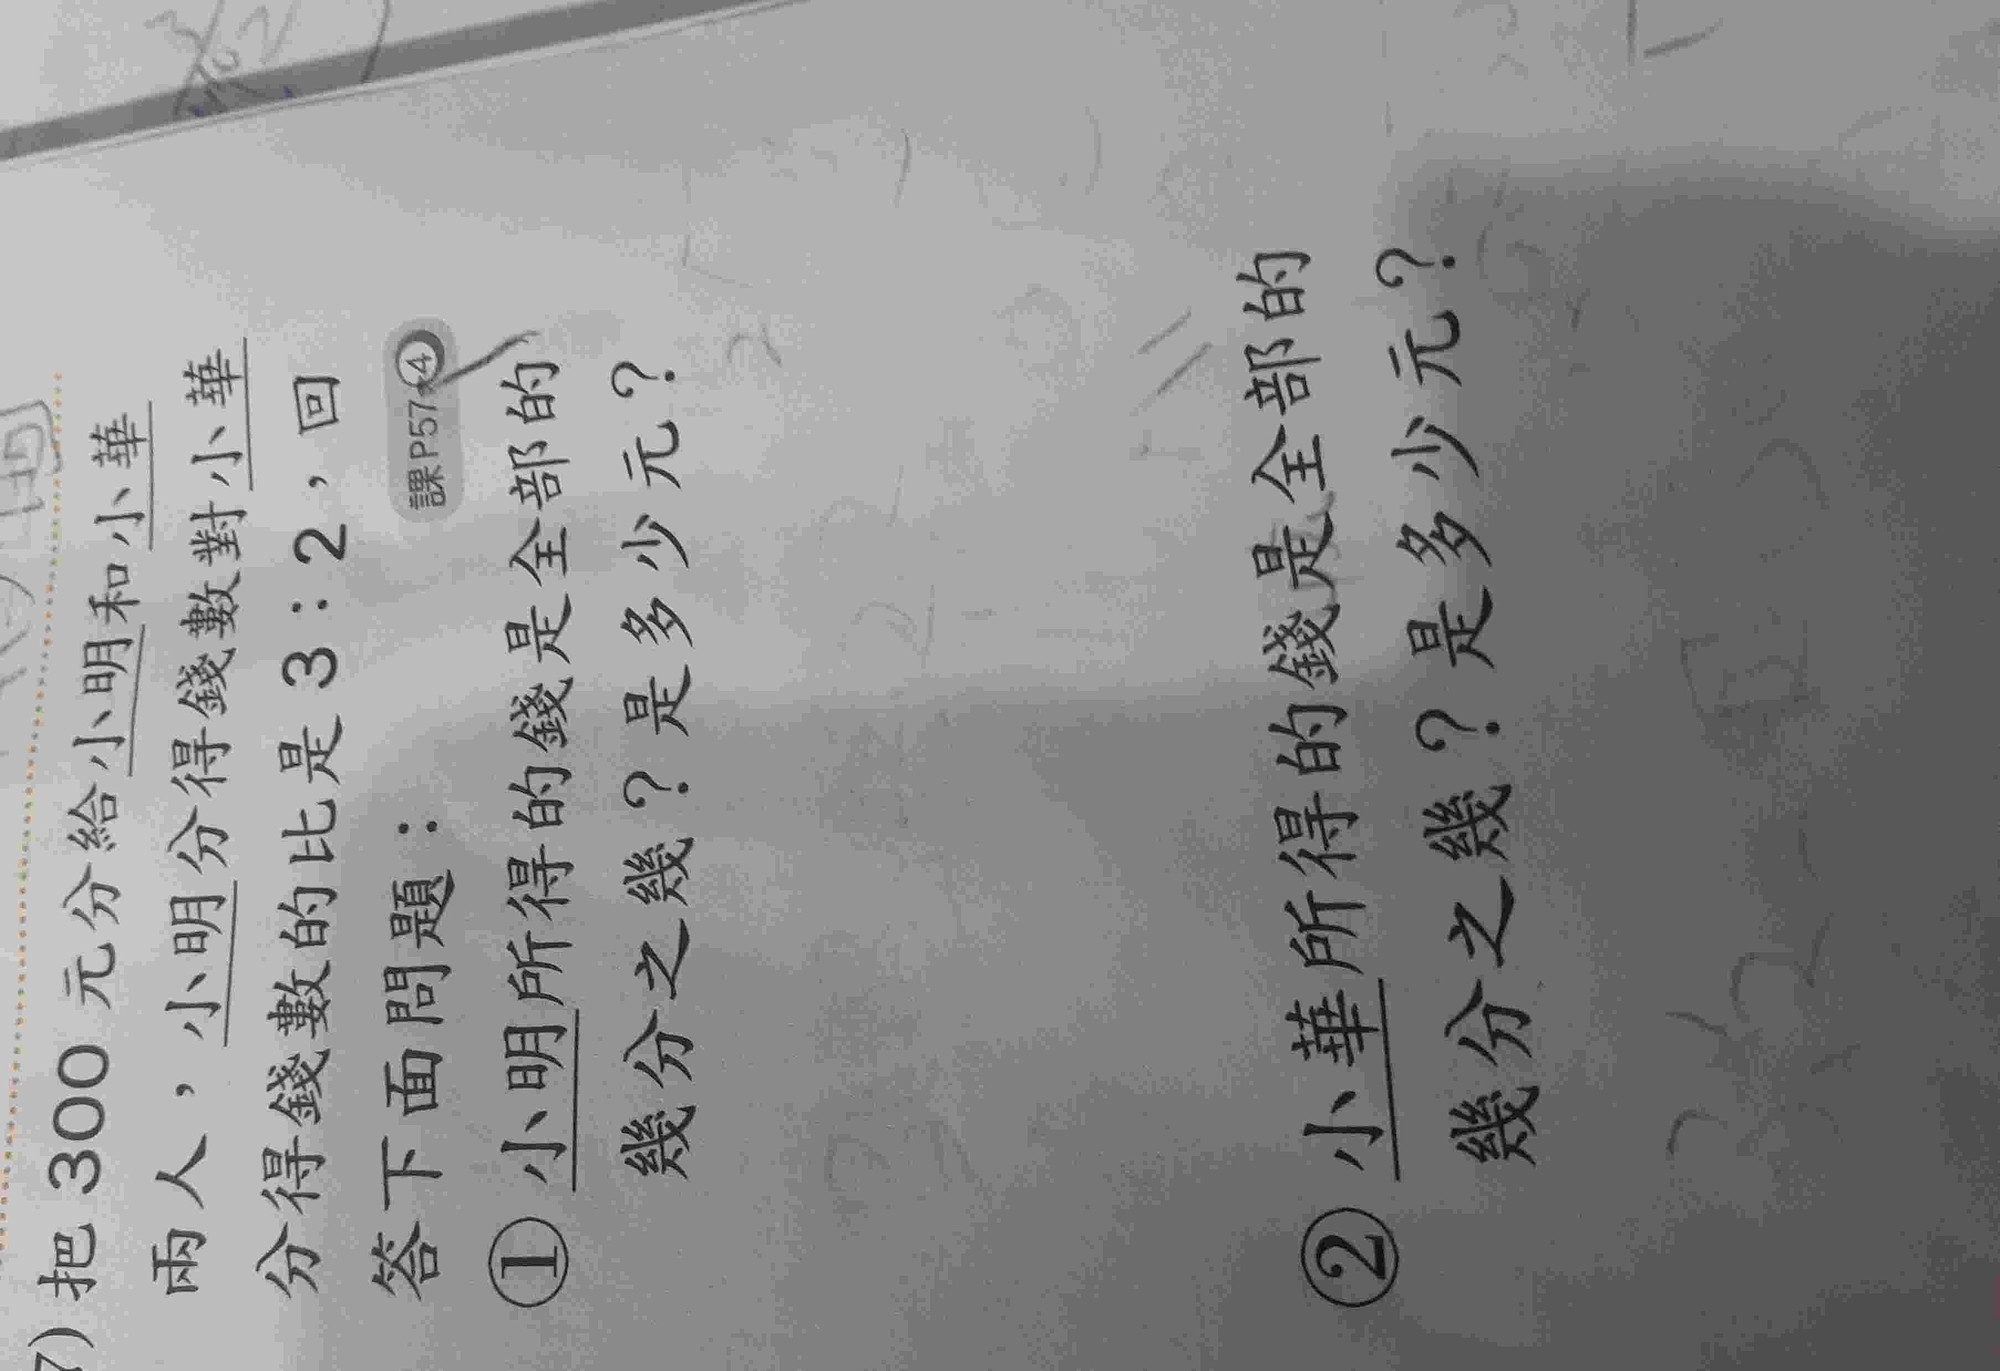 7) 把 300 元分給小明和小華
兩人，小明分得錢數對小華
分得錢數的比是 3：2，回
答下面問題：
課P57 4
① 小明所得的錢是全部的
幾分之幾？是多少元？
② 小華所得的錢是全部的
幾分之幾？是多少元？